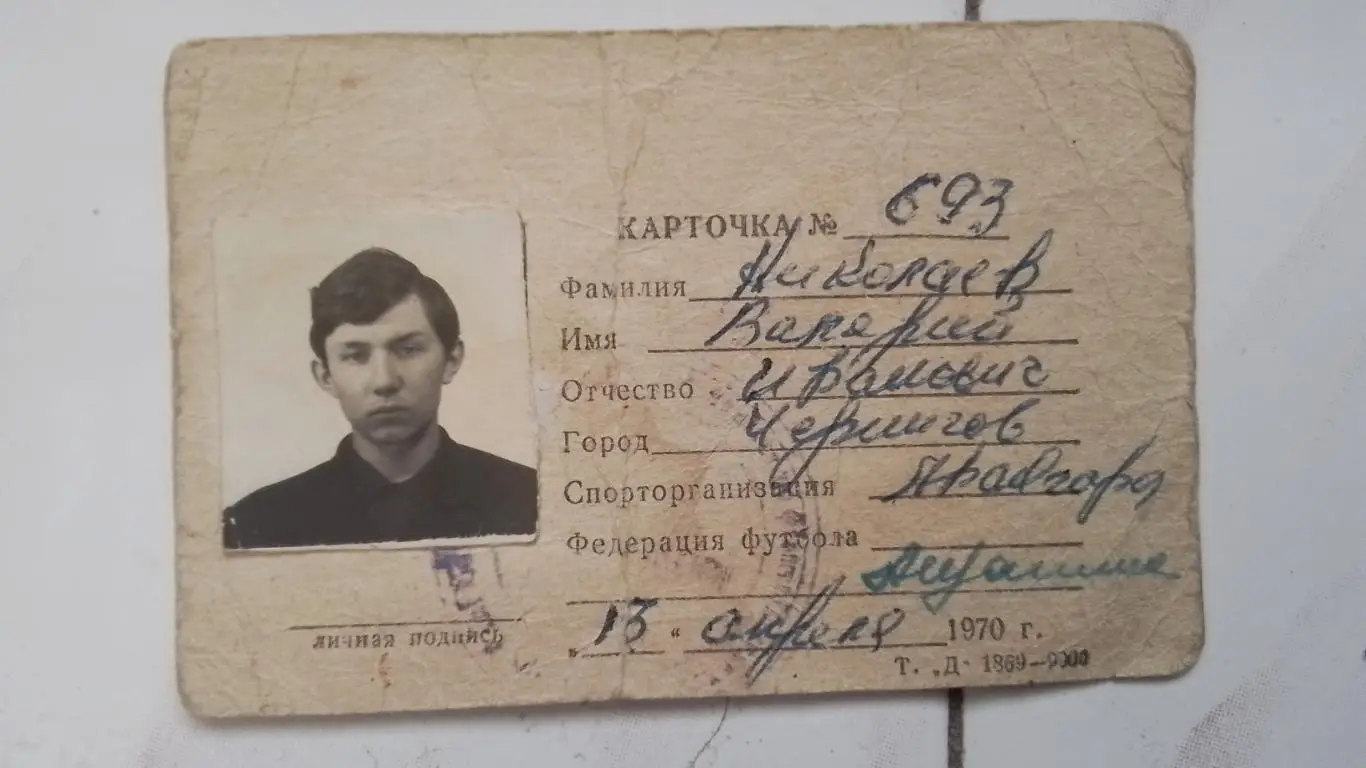 КАРТОЧКА № 693
Фамилия Николаев
Имя Валерий
Отчество Иванович
Город Чернигов
Спорторганизация
Федерация футбола
личная подпись
„ 13 “ апреля 1970 г.
Т. „Д“ 1869—9000